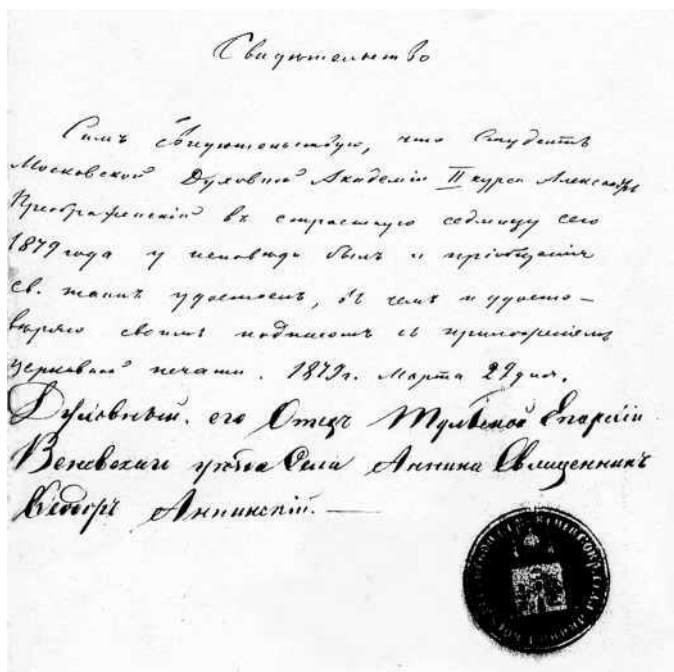 Свидѣтельство
Симъ свидѣтельствую, что Студентъ
Московской Духовной Академіи II курса Александръ
Преображенскій въ страстную седмицу сего
1879 года у исповѣди былъ и пріобщенія
св. таинъ удостоенъ, въ чемъ и удосто-
вѣряю своимъ подписомъ съ приложеніемъ
церковной печати. 1879 г. Марта 29 дня.
Духовный его Отецъ Тульской Епархіи
Веневскаго уѣзда Села Аннина Священникъ
Ѳеодоръ Аннинскій.